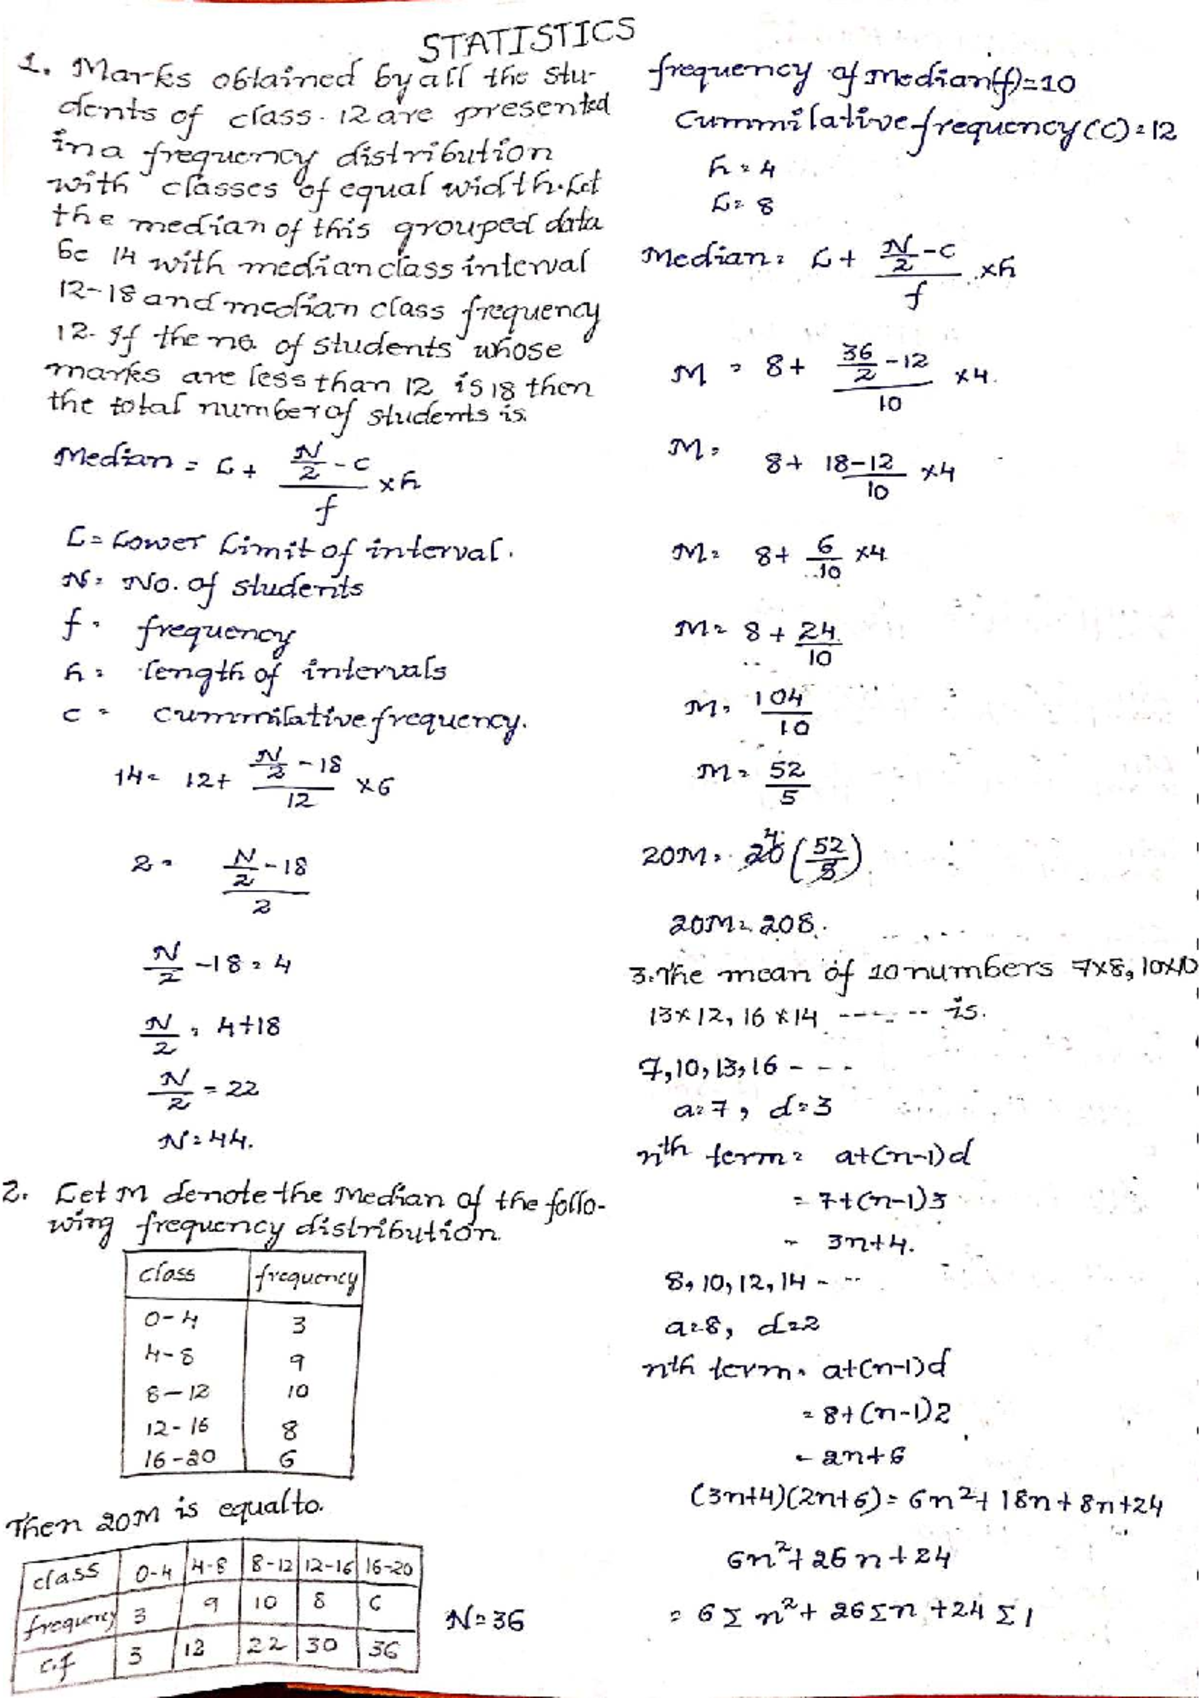 STATISTICS
1. Marks obtained by all the stu-
dents of class-12 are presented
in a frequency distribution
with classes of equal width. Let
the median of this grouped data
be 14 with median class interval
12-18 and median class frequency
12. If the no. of students whose
marks are less than 12 is 18 then
the total number of students is.
Median = L + (N/2 - C)/f × h
L = Lower Limit of interval.
N = No. of students
f = frequency
h = length of intervals
c = cummilative frequency.
14 = 12 + (N/2 - 18)/12 × 6
2 = (N/2 - 18)/2
N/2 - 18 = 4
N/2 = 4+18
N/2 = 22
N = 44.
2. Let M denote the Median of the follo-
wing frequency distribution.
class frequency
0-4 3
4-8 9
8-12 10
12-16 8
16-20 6
Then 20M is equal to.
class 0-4 4-8 8-12 12-16 16-20
frequency 3 9 10 8 6
c.f 3 12 22 30 36
N = 36
frequency of median(f)=10
Cummilative frequency(C)=12
h = 4
L = 8
Median = L + (N/2 - C)/f × h
M = 8 + (36/2 - 12)/10 × 4.
M = 8 + (18-12)/10 × 4
M = 8 + 6/10 × 4
M = 8 + 24/10
M = 104/10
M = 52/5
20M = 20 4 (52/5)
20M = 208.
3. The mean of 10 numbers 7×8, 10×10
13×12, 16×14 ------ is.
7, 10, 13, 16 - - -
a=7, d=3
nth term = a+(n-1)d
= 7+(n-1)3
= 3n+4.
8, 10, 12, 14 - --
a=8, d=2
nth term = a+(n-1)d
= 8+(n-1)2
= 2n+6
(3n+4)(2n+6) = 6n²+18n+8n+24
6n²+26n+24
= 6Σn²+26Σn+24Σ1